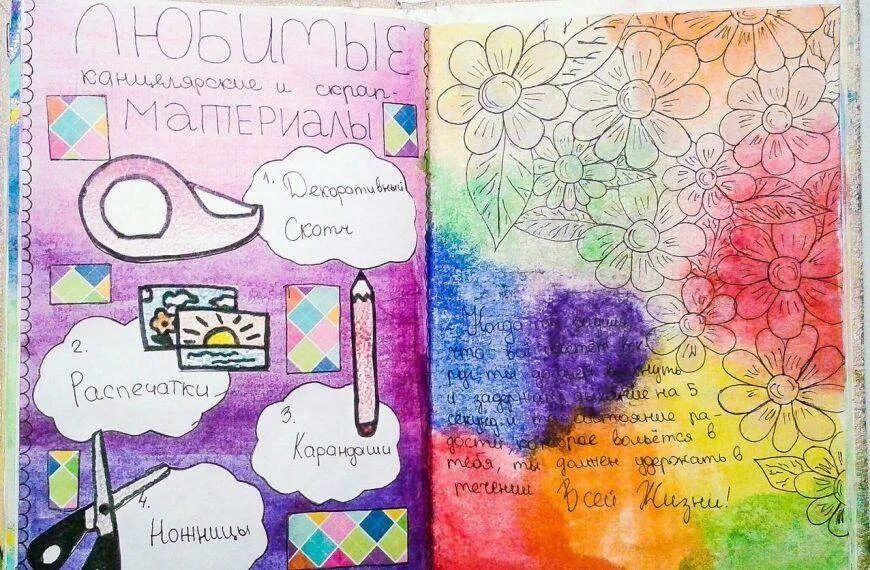 ЛЮБИМЫЕ
канцелярские и скрап-
МАТЕРИАЛЫ
1. Декоративный
Скотч
2.
Распечатки
3.
Карандаши
4.
Ножницы
Когда
что всё
ты должен
и задержать дыхание на 5
секунд и то состояние ра-
дости, которое вольётся в
тебя, ты должен удержать в
течении Всей Жизни!